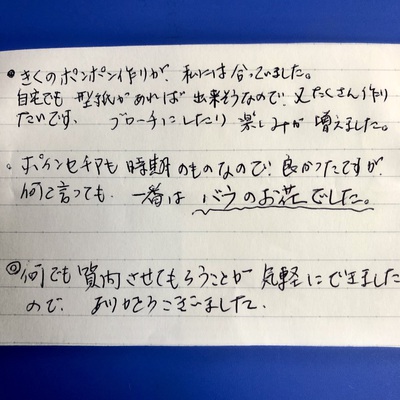 ●きくのポンポン作りが、私には合っていました。
自宅でも型紙があれば出来そうなので、又たくさん作り
たいです。ブローチにしたり楽しみが増えました。
○ポインセチアも時期のものなので、良かったですが、
何と言っても、一番はバラのお花でした。
◎何でも質問させてもらうことが気軽にできました
ので、ありがとうございました。